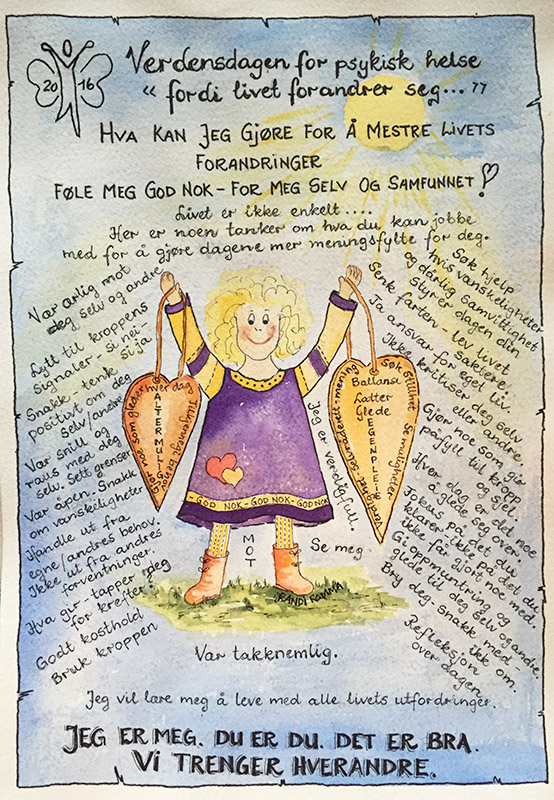 2016
Verdensdagen for psykisk helse
"fordi livet forandrer seg..."
HVA KAN JEG GJØRE FOR Å MESTRE LIVETS
FORANDRINGER
FØLE MEG GOD NOK - FOR MEG SELV OG SAMFUNNET!
Livet er ikke enkelt....
Her er noen tanker om hva du kan jobbe
med for å gjøre dagene mer meningsfylte for deg.
Vær ærlig mot
deg selv og andre
Lytt til kroppens
signaler - si nei -
tenk si ja
Snakk
positivt om deg
selv/andre
Vær snill og
raus med deg
selv. Sett grenser
Vær åpen. Snakk
om vanskeligheter
Handle ut fra
egne/andres behov.
Ikke ut fra andres
forventninger.
Hva gir - tapper deg
for krefter.
Godt kosthold
Bruk kroppen
Gjør noe som gleder hver dag
ALTERMULIGE
Søk hjelp
hvis vanskeligheter
og dårlig samvittighet
styrer dagen din
Senk farten - lev livet
saktere.
Ja ansvar for eget liv.
Ikke kritiser deg selv
eller andre
Gjør noe som gir
påfyll til kropp
og sjel.
Hver dag er det noe
å glede seg over.
Fokus på det du
klarer ikke på det du
ikke får gjort noe med
Gi oppmuntring og
glede til deg selv og andre.
Bry deg - snakk med -
ikke om.
Refleksjon
over dagen
Søk Stillhet
Se muligheter
Ballanse
Latter
Glede
EGENPLEIE
Jeg er verdig/vel.
- GOD NOK - GOD NOK - GOD NOK
MOT
Se meg
RANDI RAMMA
Vær takknemlig.
Jeg vil lære meg å leve med alle livets utfordringer.
JEG ER MEG. DU ER DU. DET ER BRA.
VI TRENGER HVERANDRE.